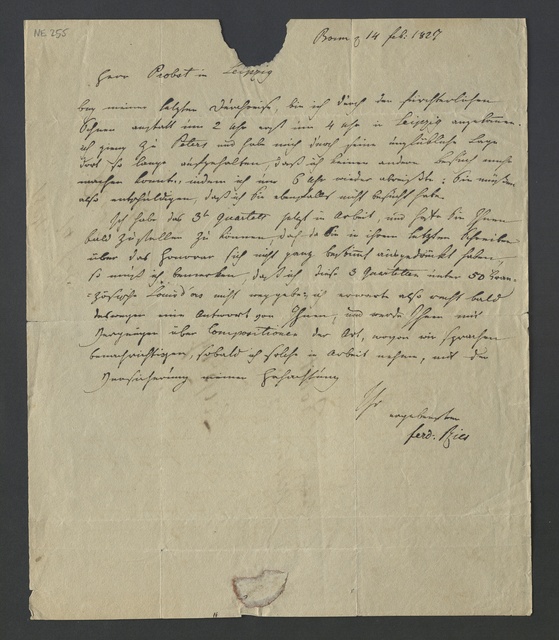 NE 255
Bonn 14 feb. 1827
Herr Probst in Leipzig
bey meiner letzten Durchreise, bin ich durch den fürchterlichen
Schnee anstatt um 2 Uhr erst um 4 Uhr in Leipzig angekommen.
ich gieng zu Peters und habe mich durch seine unglückliche Lage
dort so lange aufgehalten, daß ich keinen andern besuch mehr
machen konnte, indem ich um 6 Uhr wieder abreißte; Sie müßen
also entschuldigen, daß ich Sie ebenfalls nicht besucht habe.
Ich habe das 3te Quartett jetzt in Arbeit, und hoffe Sie Ihnen
bald zustellen zu können, doch da Sie in ihrem letzten Schreiben
über das Honorar sich nicht ganz bestimmt ausgedrückt haben,
so muß ich bemerken, daß ich diese 3 Quartetten unter 50 Fran-
zösische Louisd'or nicht weggebe; ich erwarte also recht bald
deswegen eine Antwort von Ihnen, und werde Ihnen mit
Vergnügen über Compositionen der Art, wovon wir sprachen
benachrichtigen, sobald ich solche in Arbeit nehme, mit der
Versicherung meiner Hochachtung
Ihr
ergebenster
ferd: Ries